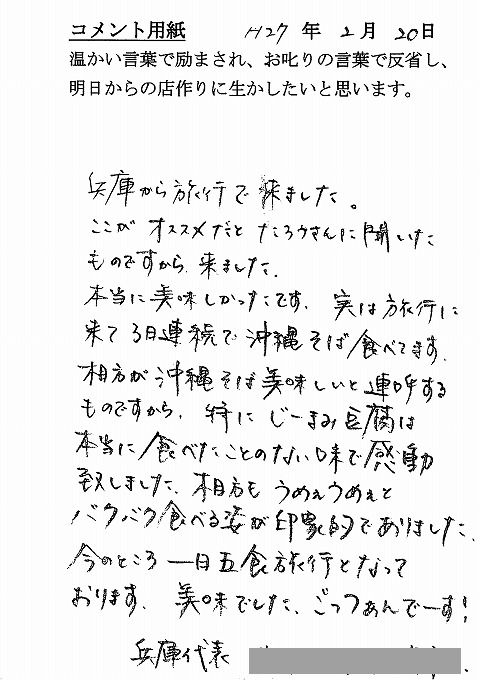 コメント用紙 H27 年 2 月 20 日
温かい言葉で励まされ、お叱りの言葉で反省し、
明日からの店作りに生かしたいと思います。
兵庫から旅行で来ました。
ここが オススメだと たろうさんに聞いた
ものですから、来ました。
本当に美味しかったです。実は旅行に
来て3日連続で沖縄そば食べてます。
相方が沖縄そば美味しいと連呼する
ものですから。特にじーまみ豆腐は
本当に食べたことのない味で感動
致しました。相方もうめぇうめぇと
バクバク食べる姿が印象的でありました。
今のところ一日五食旅行となって
おります。美味でした。ごっつぁんでーす!
兵庫代表